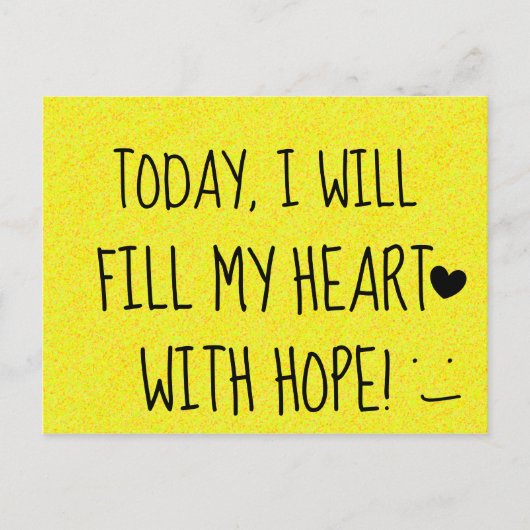 TODAY, I WILL
FILL MY HEART♥
WITH HOPE! :)